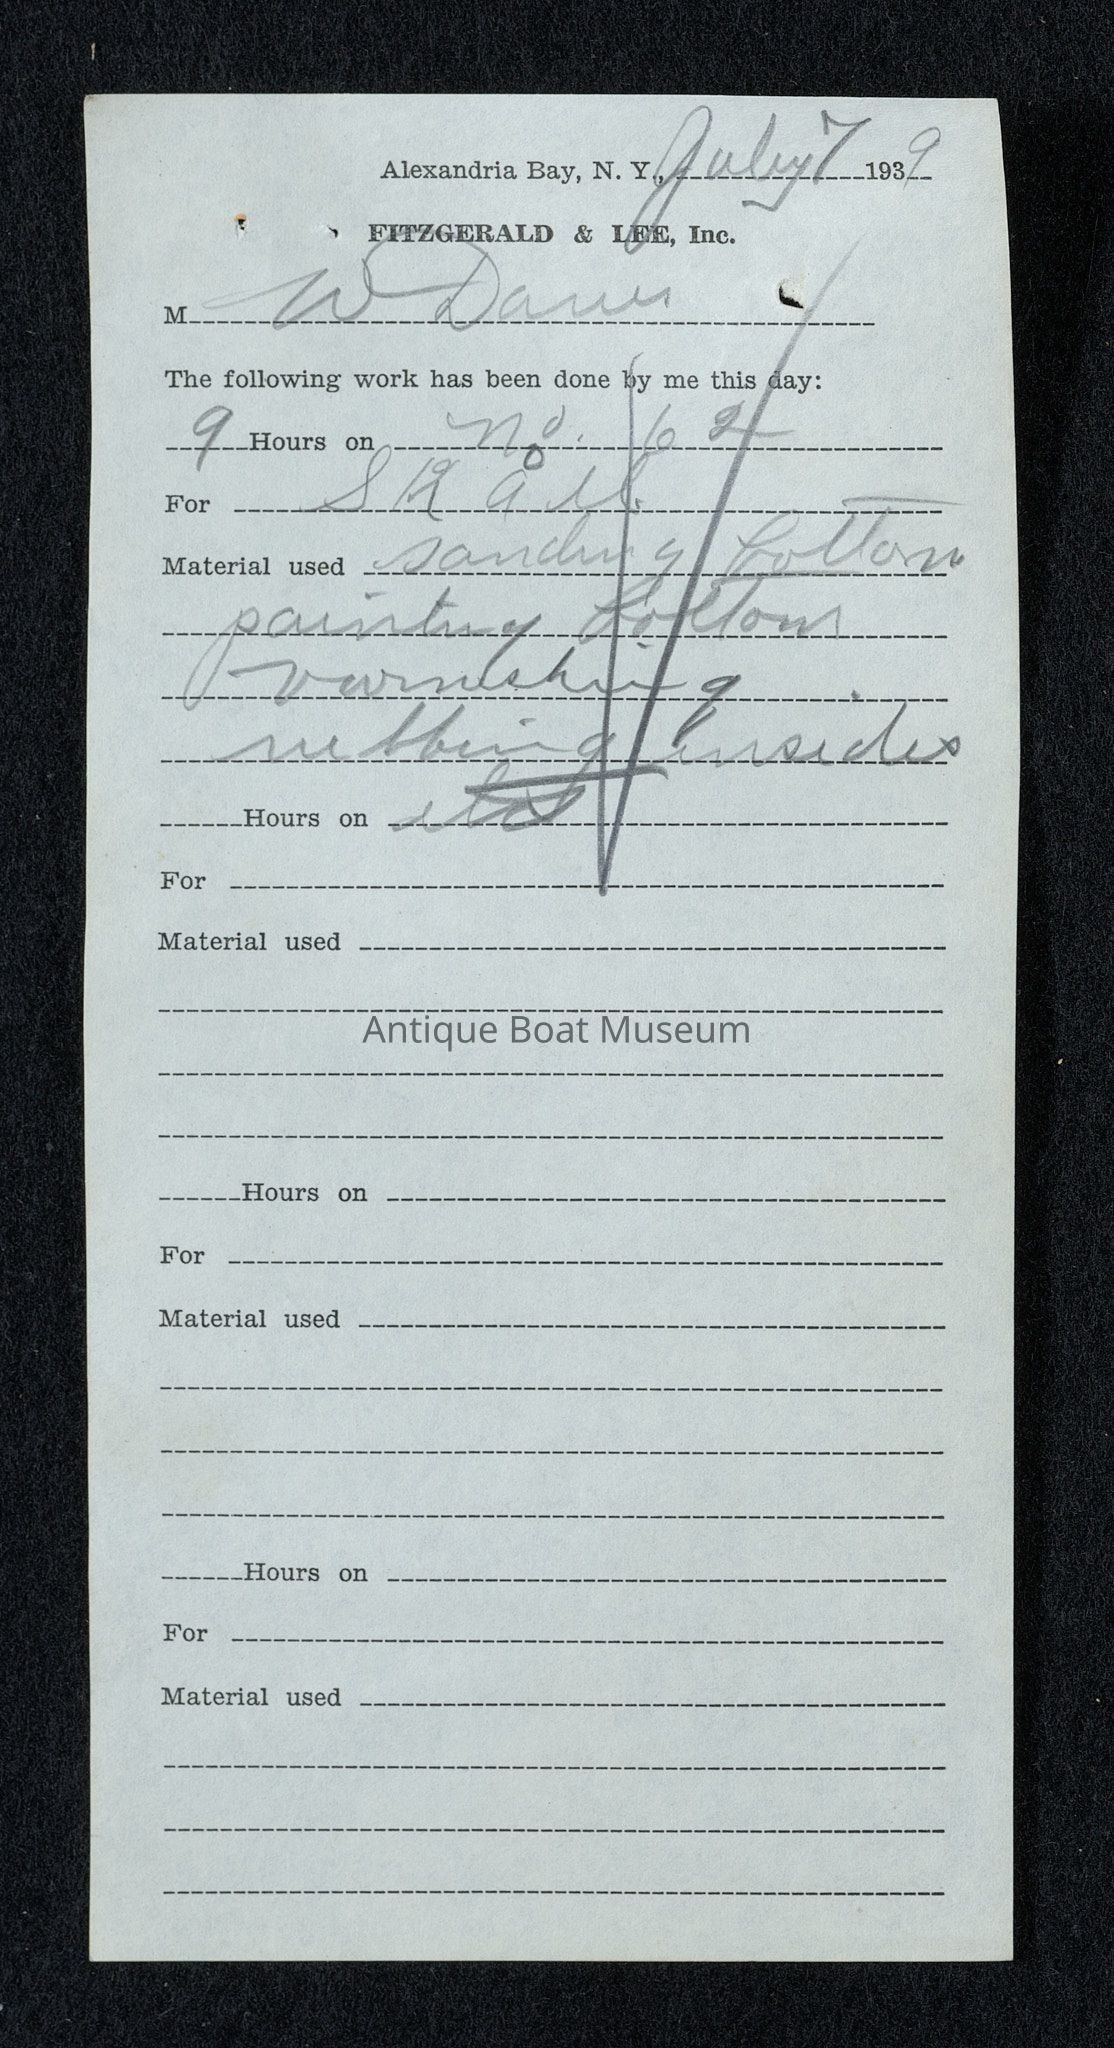 Alexandria Bay, N. Y., July 7 1939
FITZGERALD & LEE, Inc.
M W Davis
The following work has been done by me this day:
9 Hours on No. 62
For
Material used sanding bottom
painting bottom
varnishing
rubbing insides
Hours on etc
For
Material used
Antique Boat Museum
Hours on
For
Material used
Hours on
For
Material used